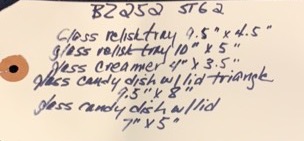 BZ252 ST62
Glass relish tray 9.5" x 4.5"
glass relish tray 10" x 5"
glass creamer 4" x 3.5"
glass candy dish w/ lid triangle
9.5" x 8"
glass candy dish w/ lid
7" x 5"